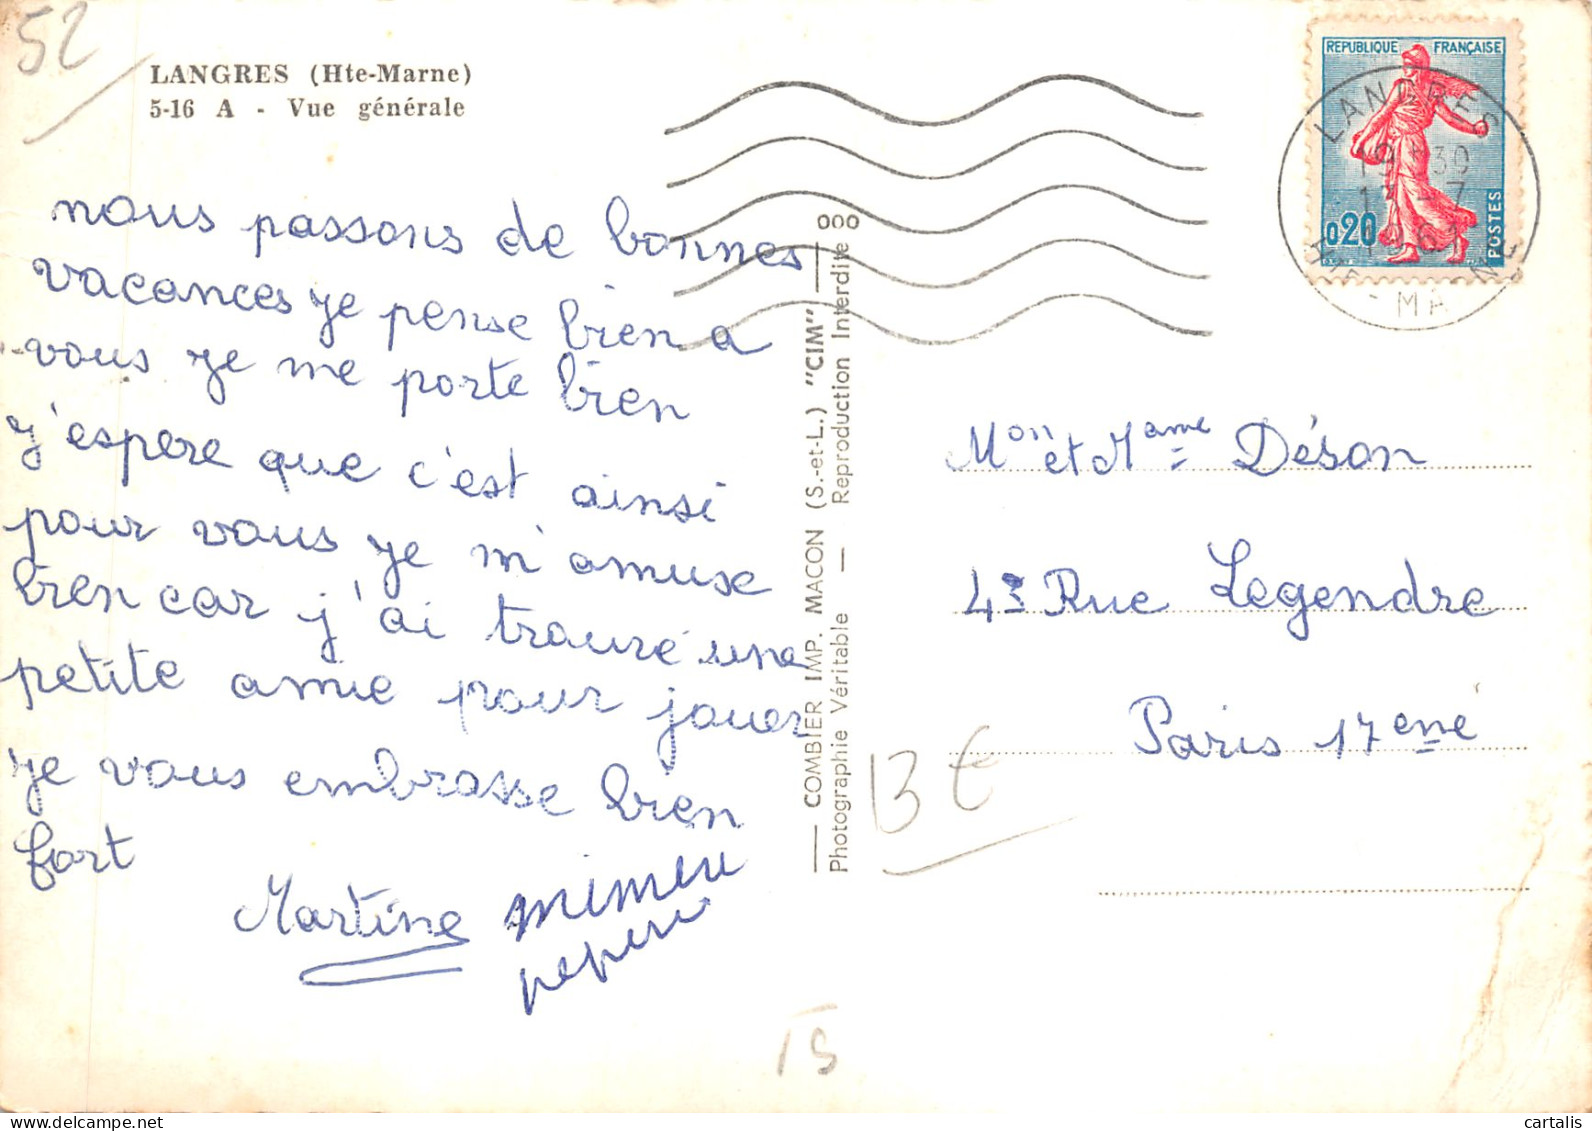 52
LANGRES (Hte-Marne)
5-16 A - Vue générale
nous passons de bonnes
vacances je pense bien a
vous je me porte bien
j'espere que c'est ainsi
pour vous je m'amuse
bien car j'ai trouvé une
petite amie pour jouer
je vous embrasse bien
fort
Martine mimere
pepere
COMBIER IMP. MACON (S.-et-L.) "CIM"
Photographie Véritable — Reproduction Interdite
REPUBLIQUE FRANÇAISE
0,20
POSTES
LANGRES
19 - 30
HTE - MARNE
Mon et Mame Déson
4 Rue Legendre
Paris 17eme
13 €
TS
cartalis